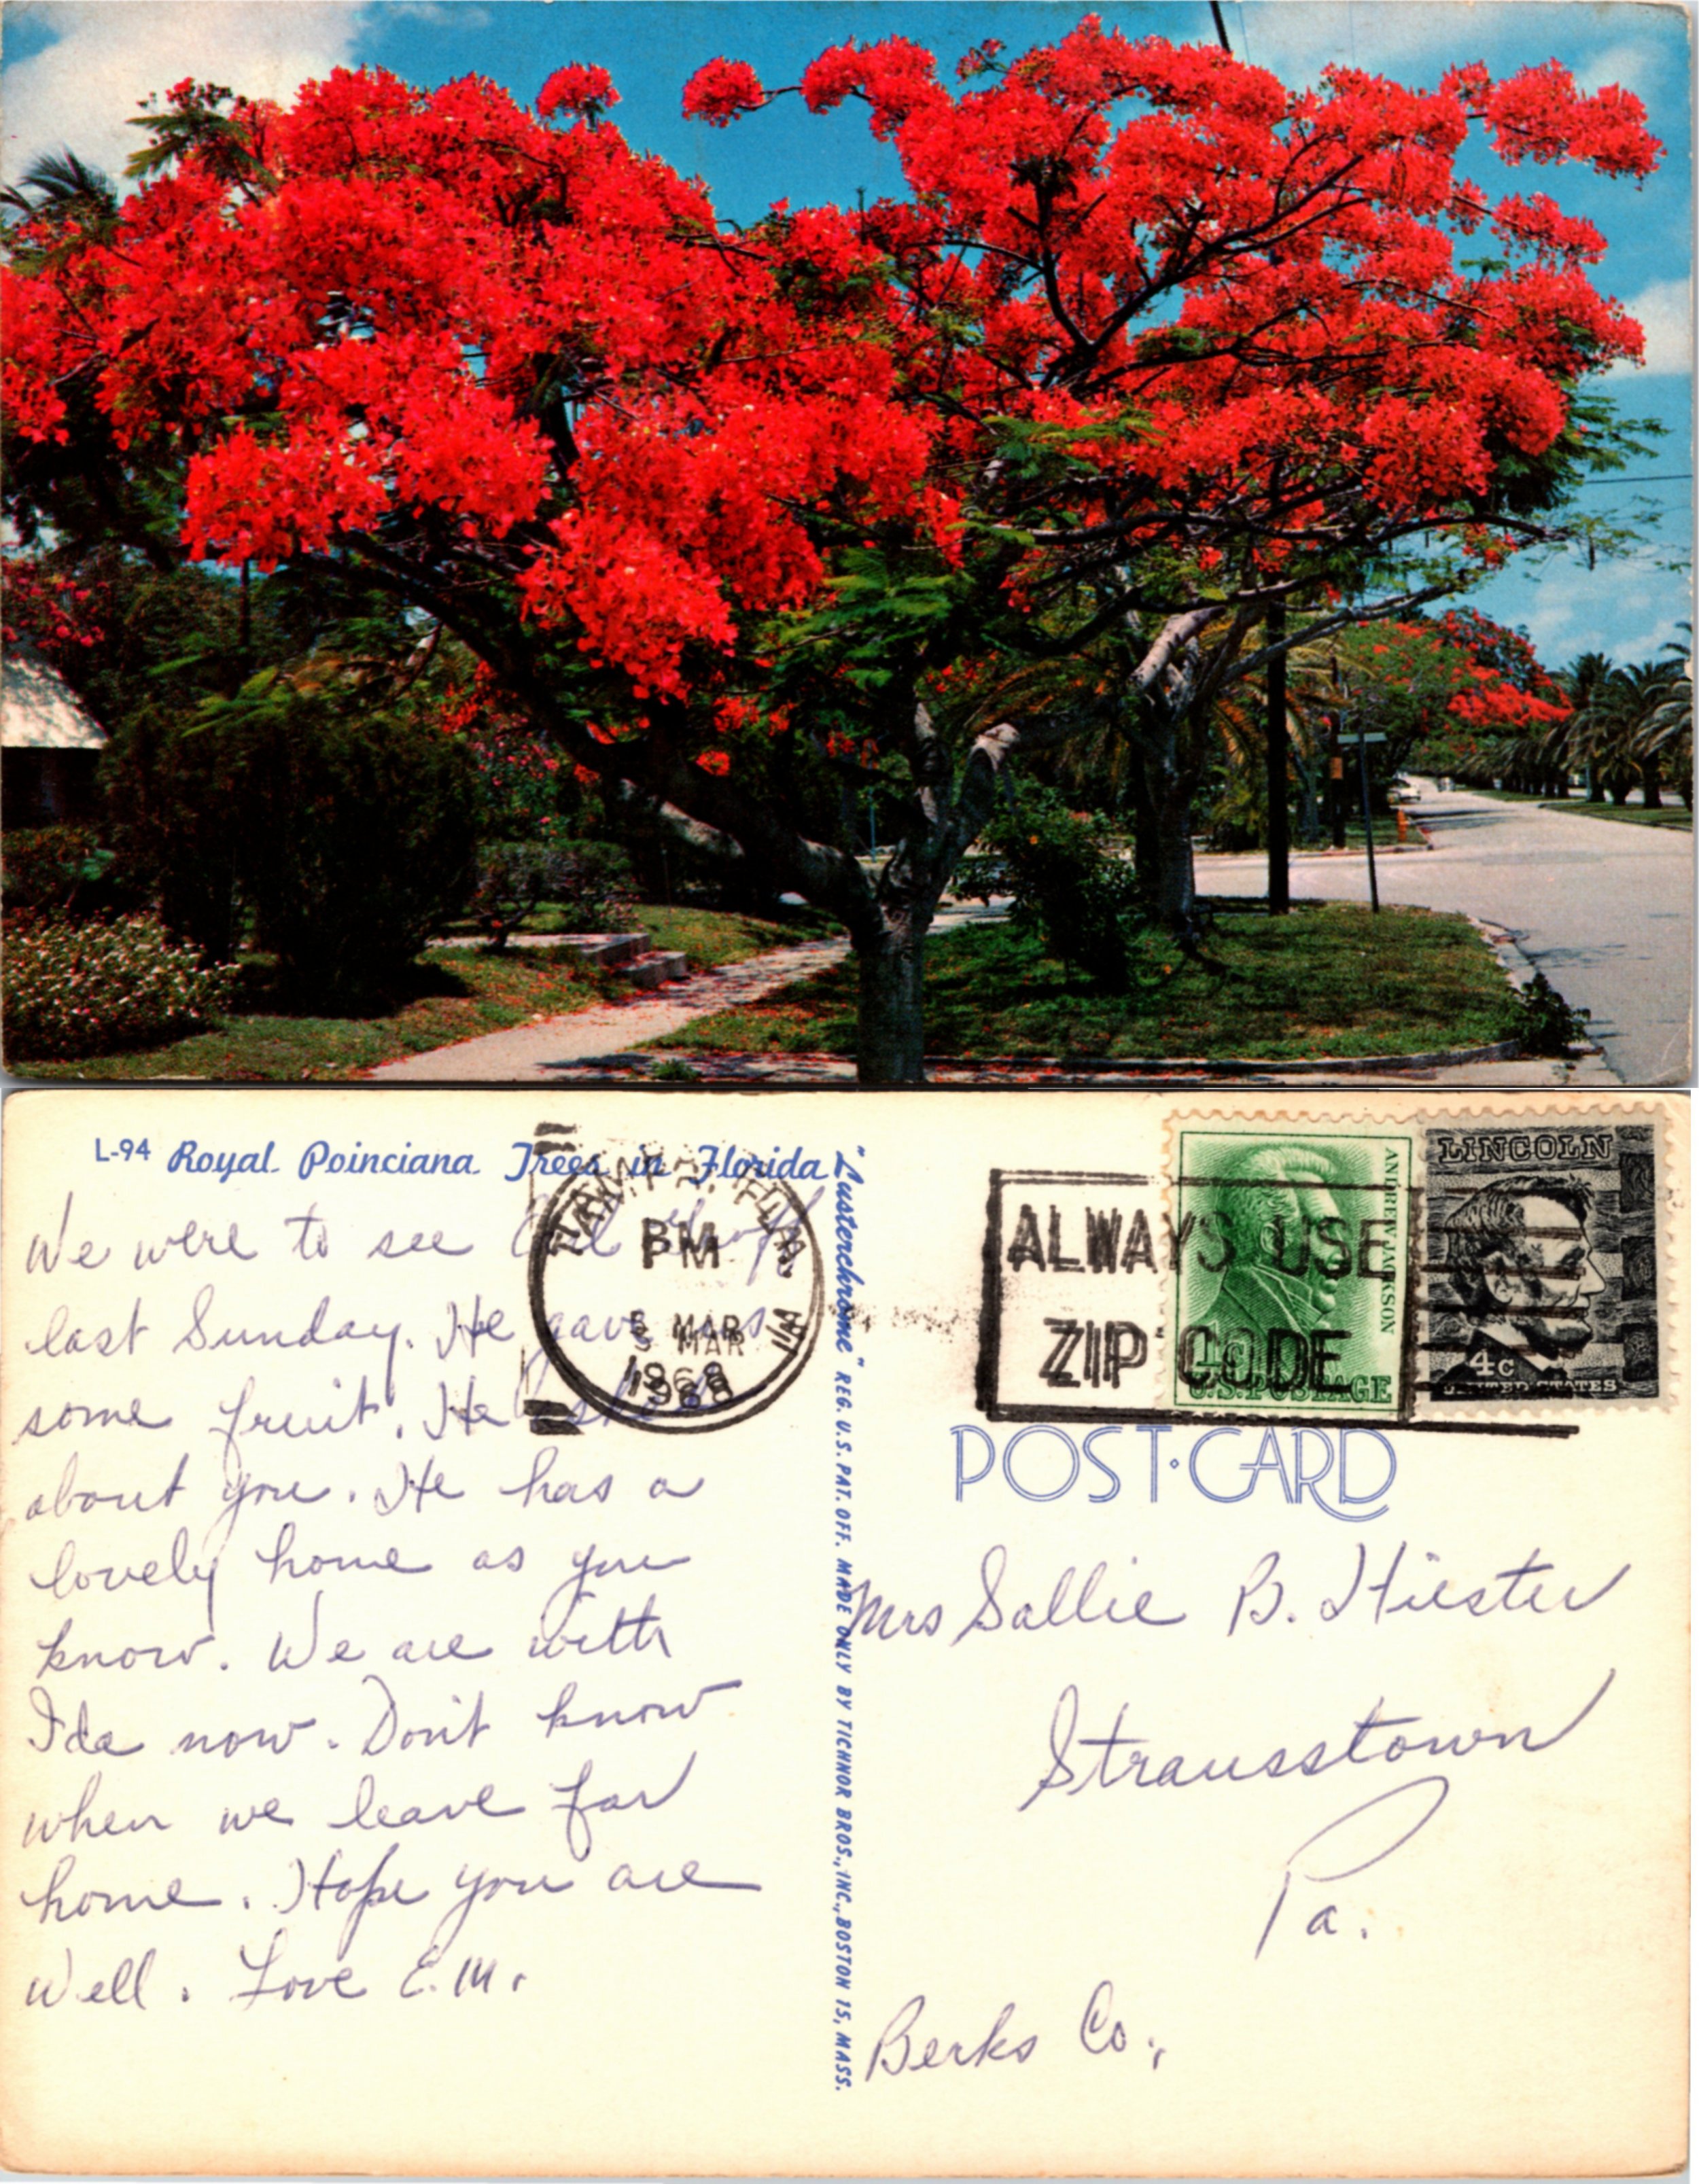 L-94 Royal Poinciana Trees in Florida
We were to see
last Sunday. He gave us
some fruit. He asked
about you. He has a
lovely home as you
know. We are with
Ida now. Don't know
when we leave for
home. Hope you are
Well. Love E.M.
TAMPA, FLA.
PM
5 MAR
1968
1A
"Lusterchrome" REG. U.S. PAT. OFF. MADE ONLY BY TICHNOR BROS., INC., BOSTON 15, MASS.
ALWAYS USE
ZIP CODE
ANDREW JACKSON
1¢
U.S. POSTAGE
LINCOLN
4c
UNITED STATES
POST·CARD
Mrs Sallie B. Hiester
Strausstown
Pa.
Berks Co.,